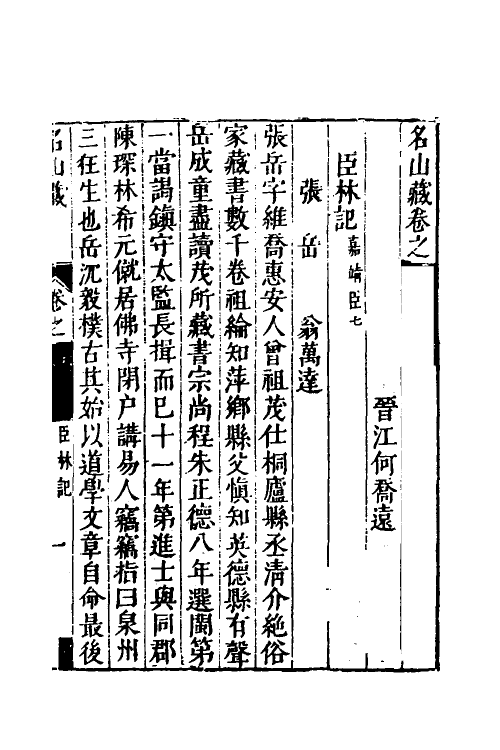 名山藏卷之
晉江何喬遠
臣林記 嘉靖臣七
張岳 翁萬達
張岳字維喬惠安人曾祖茂仕桐廬縣丞清介絶俗
家藏書數千卷祖綸知萍鄉縣父慎知英德縣有聲
岳成童盡讀茂所藏書宗尚程朱正德八年選閩第
一當謁鎮守太監長揖而已十一年第進士與同郡
陳琛林希元僦居佛寺閉户講易人竊竊指曰泉州
三狂生也岳沉毅樸古其始以道學文章自命最後
名山藏 卷之 臣林記 一